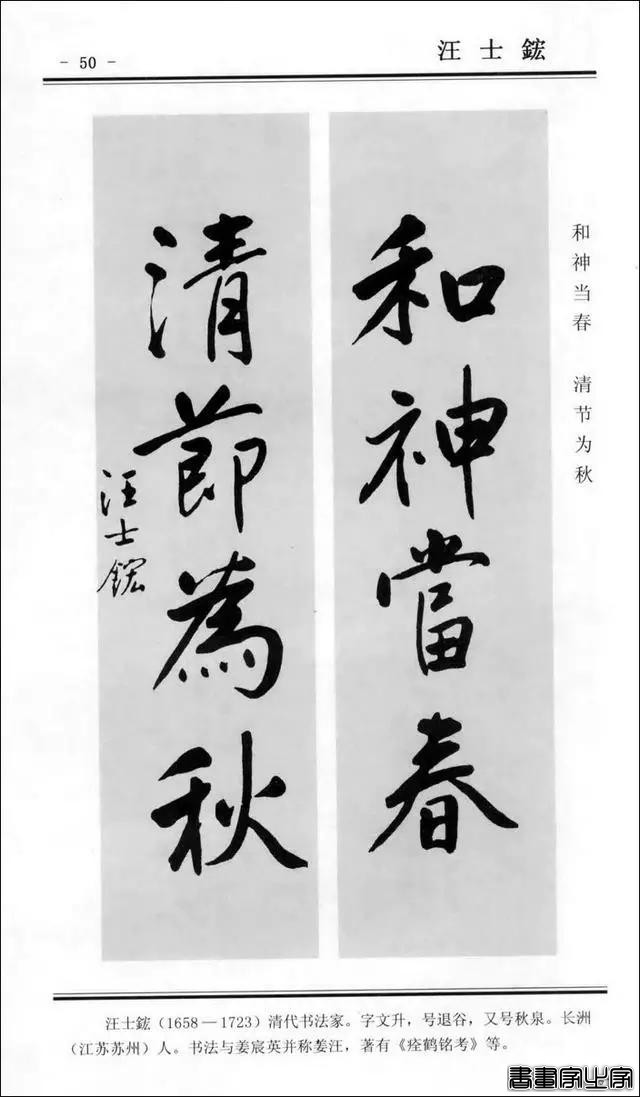 - 50 -
汪士鋐
和神當春
清節為秋
汪士鋐
和神当春 清节为秋
汪士鋐(1658—1723)清代书法家。字文升,号退谷,又号秋泉。长洲
(江苏苏州)人。书法与姜宸英并称姜汪,著有《瘗鹤铭考》等。
書畫家必字